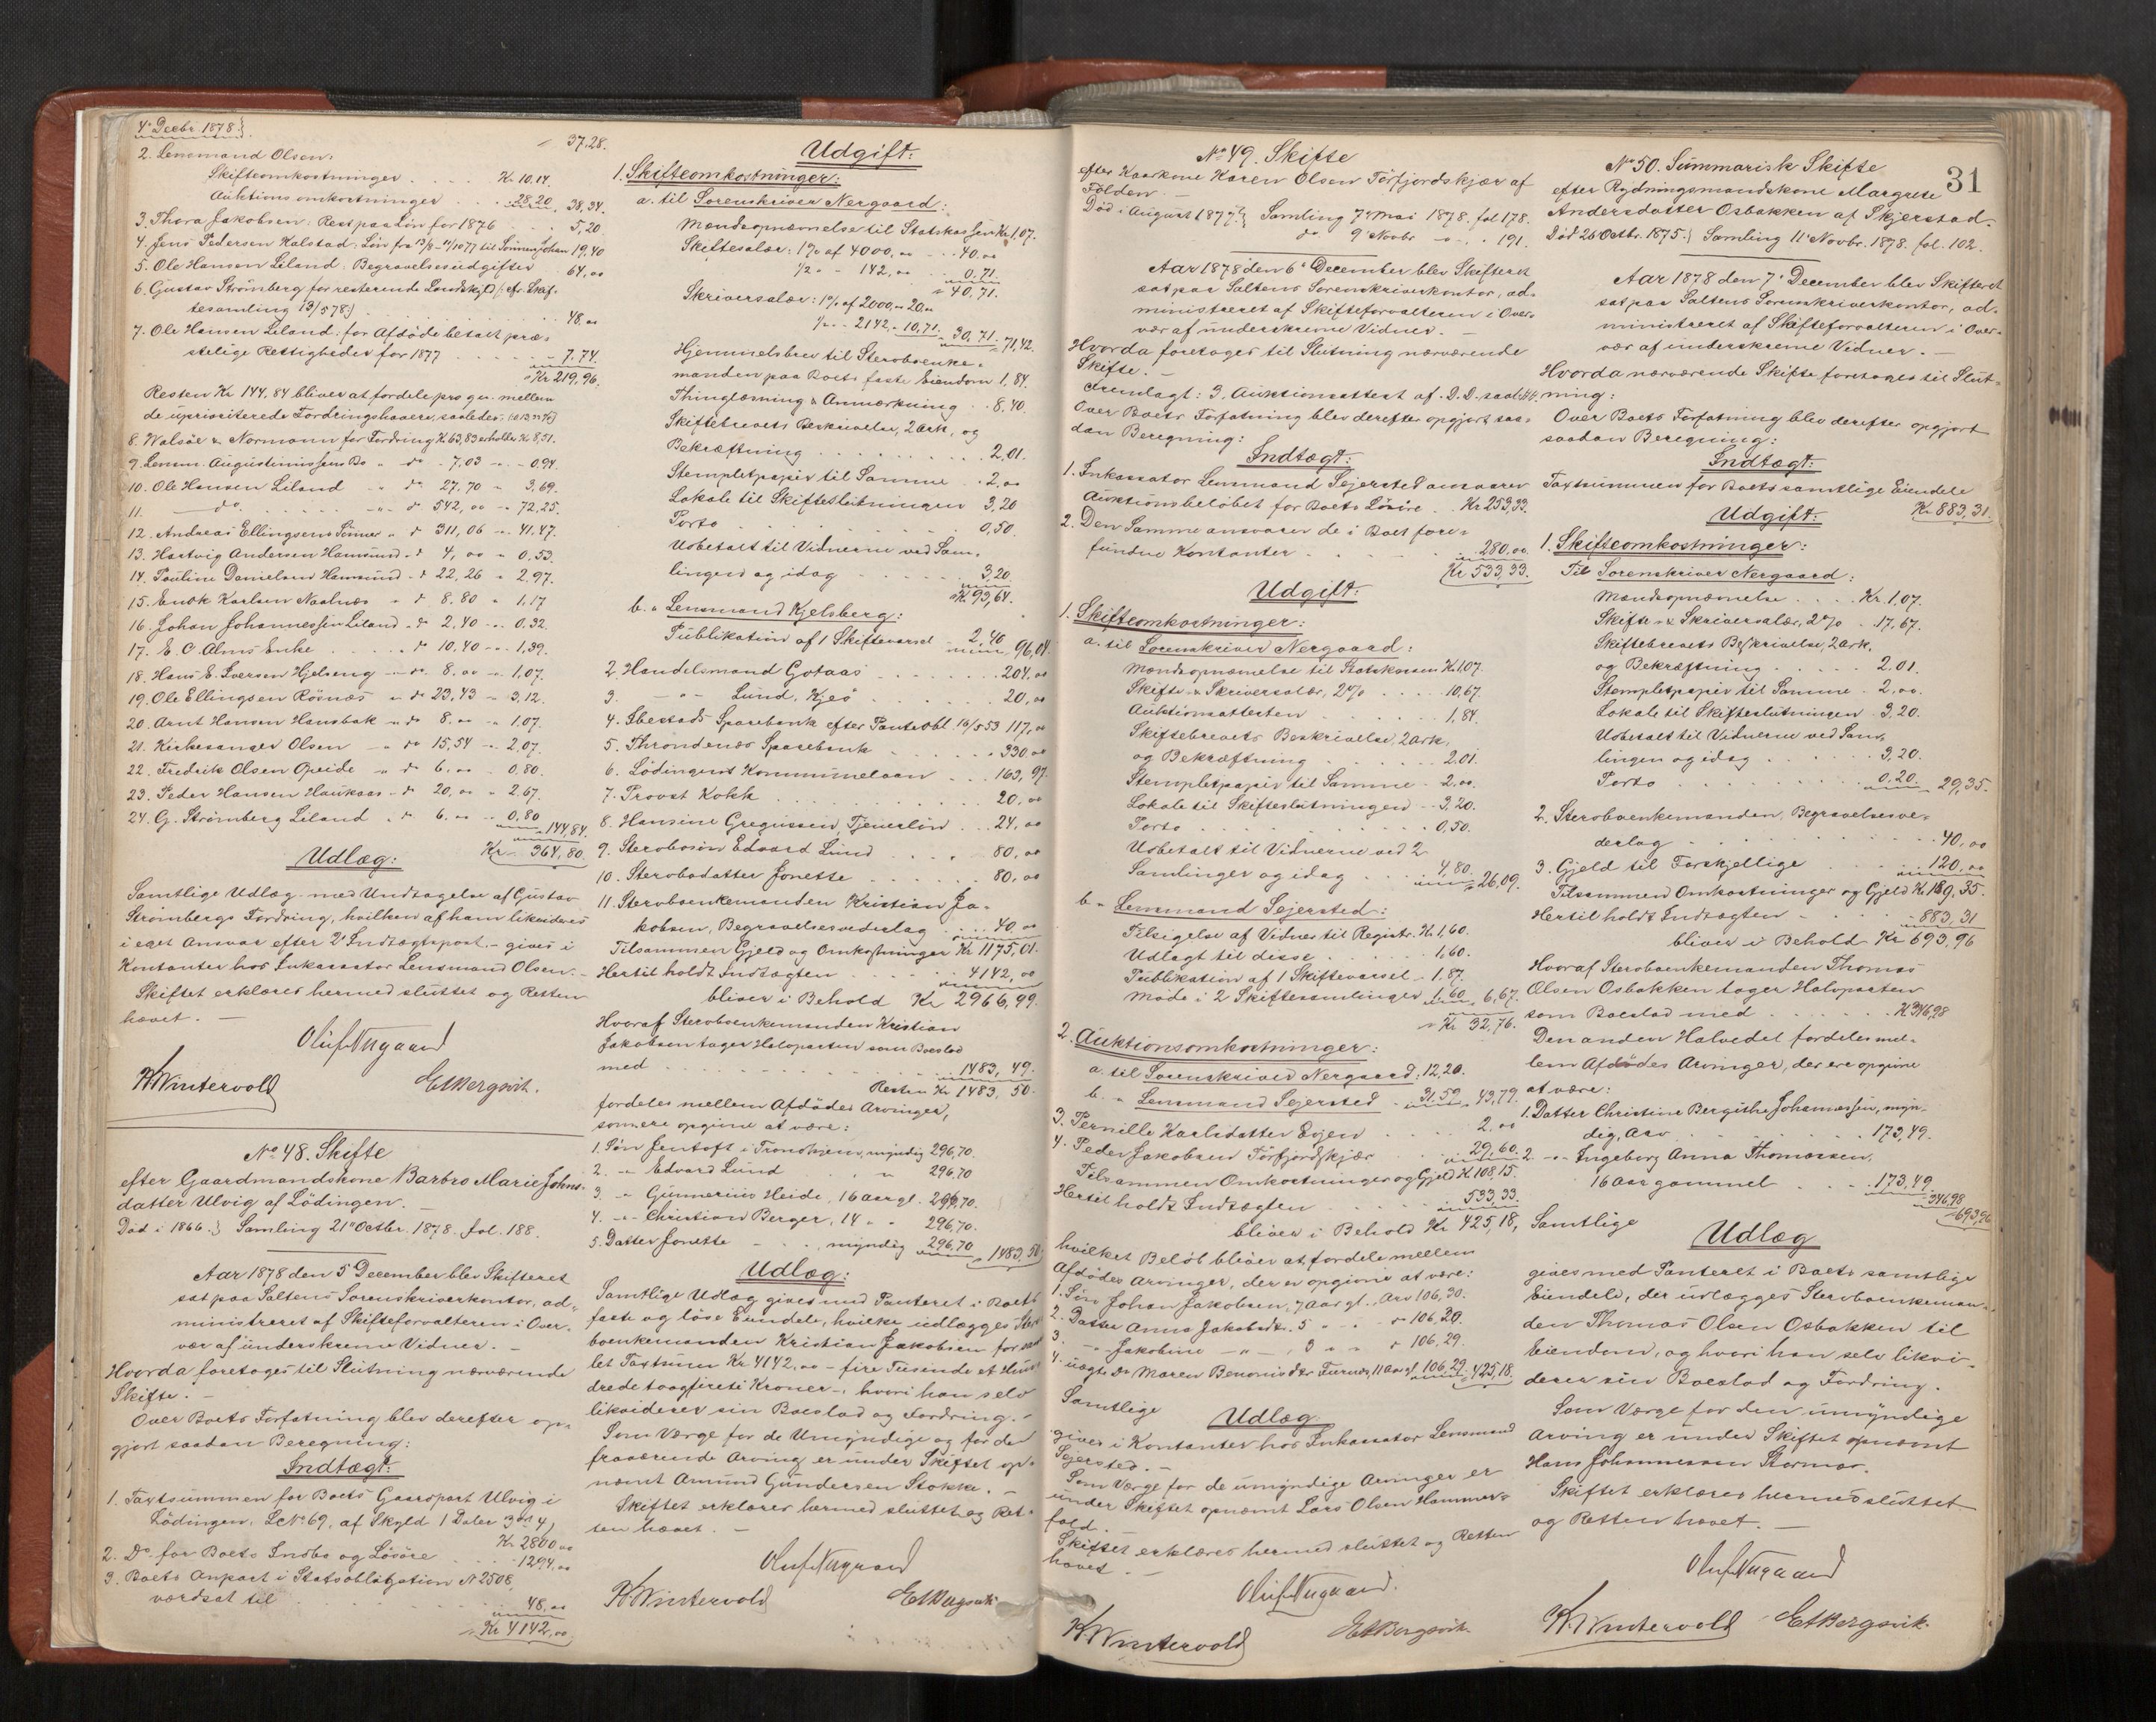 4de Decbr. 1878.
37.28.
2. Lensmand Olsen:
Skifteomkostninger . . . . Kr. 10.14.
Auktionsomkostninger . . . 28,20. 38,34.
3. Thora Jakobsen: Rest paa Løn for 1876 . . . 5,20
4. Jens Pedersen Halstad: Løn fra til Sønnen Johan 19,40
5. Ole Hansen Liland: Begravelsesudgifter 64,00
6. Gustav Strömberg for resterende Landskyld /: cfr. Skif-
tesamling 13/5 78 :/ . . . . 48,00
7. Ole Hansen Liland: for Afdøde betalt præ-
stelige Rettigheder for 1877 . . . . 7.74.
Kr 219,96.
Resten Kr 144.84 bliver at fordele pro qu. mellem
de uprioriterede Fordringshavere, saaledes:
8. Walsöe & Normann for Fordring Kr 63,83 erholder Kr 8,51.
9. Lensm. Augustinussens Bo " do " 7,03 - " 0,94.
10. Ole Hansen Liland " do " 27,70 " 3,69.
11. do . . . . . " do 542,00 " 72,25.
12. Andreas Ellingsens Sønner " do 311,06 " 41.47.
13. Hartvig Andersen Hamsund " do 4,00 " 0.53.
14. Pauline Danielsen Hamsund " do 22,26 " 2,97.
15. Enok Karlsen Naalnæs " do 8.80 " 1,17
16. Johan Johannessen Liland " do 2,40 " 0.32.
17. E. C. Alms Enke . . . . do 10,40 " 1,39.
18. Hans E. Iversen Hjelseng " do 8,00 " 1,07.
19. Ole Ellingsen Rösnæs " do 23,43 " 3,12.
20. Arnt Hansen Hansbak " do 8.00 " 1,07.
21. Kirkesanger Olsen " do 15,54 " 2,07.
22. Fredrik Olsen Opeide " do 6.00 " 0,80.
23. Peder Hansen Haukaas " do 20,00 " 2,67.
24. G. Strömberg Liland " do 6.00 " 0,80
144,84.
Kr. 364,80.
Udlæg:
Samtlige Udlæg med Undtagelse af Gustav
Strømbergs Fordring, hvilken af ham likvideres
i eget Ansvar efter 2d Indtægtspost, - gives i
Kontanter hos Inkassator Lensmand Olsen. -
Skiftet erklæres hermed sluttet og Retten
hævet. -
Oluf Nergaard
K. Wintervold
Et Bergsvik.
No 48. Skifte
efter Gaardmandskone Barbro Marie Johns-
datter Ulvig af Lödingen. -
Død i 1866. } Samling 21de Octbr. 1878. fol. 188.
Aar 1878 den 5 December blev Skifteret
sat paa Saltens Sorenskriverkontor, ad-
ministreret af Skifteforvalteren i Over-
vær af underskrevne Vidner. -
Hvorda foretoges til Slutning nærværende
Skifte. -
Over Boets Forfatning blev derefter op-
gjort saadan Beregning:
Indtægt:
1. Taxtsummen for Boets Gaardpart Ulvig i
Lödingen, L. No 69, af Skyld 1 Daler 3 Ort 4 /
Kr 2800,00
2. Do for Boets Indbo og Løsøre . . . 1294,00
3. Boets Anpart i Statsobligation N 2508,
værdsat til . . . . . . 48,00
Kr 4142,00
Udgift:
1. Skifteomkostninger:
a. til Sorenskriver Nergaard:
Mændsopnævnelse til Statskassen Kr 1,07.
Skiftesalær: 1% af 4000,00 . . . 40,00
1/2 " - 142,00 . . . 0.71.
40,71.
Skriversalær: 1% af 2000,00 20,00
1/2 " - 2142,00 10,71. 30,71. 71,42.
Hjemmelsbrev til Sterboenke-
manden paa Boets faste Eiendom 1,84.
Thinglæsning & Anmærkning . . 8,40.
Skiftebrevets Beskrivelse, 2 Ark, og
Bekræftning . . . . . . . . . 2,01.
Stempletpapir til Samme . . 2,00
Lokale til Skifteslutningen 3,20
Porto . . . . . . . . 0,50.
Udbetalt til Vidnerne ved Sam-
lingen og idag . . . . . 3,20
Kr 93,64.
b. " Lensmand Kjelsberg:
Publikation af 1 Skiftevarsel - 2,40 96,04.
2. Handelsmand Gotaas . . . . . . 204,00
3. - " - Lund, Kjeö . . . . 20,00
4. Ibestads Sparebank efter Panteobl. 16/5 53 117,00
5. Throndenæs Sparebank . . . . 330,00
6. Lödingens Kommunelaan . . . 163,97.
7. Provst Kokk . . . . . . . . . 20,00
8. Hansine Gregussen, Tjenerløn . . . 24,00
9. Sterbosøn Edvard Lund . . . . 80,00
10. Sterbodatter Jonette . . . . . . 80,00
11. Sterboenkemanden Kristian Ja-
kobsen, Begravelsesvederlag . . . 40,00
Tilsammen Gjeld og Omkostninger Kr 1175,01.
Hertil holdt Indtægten . . . . . . 4142,00
bliver i Behold Kr 2966,99.
Hvoraf Sterboenkemanden Kristian
Jakobsen tager Halvparten som Boeslod
med . . . . . . . . . . . 1483,49.
Resten Kr 1483,50.
fordeles mellem Afdødes Arvinger,
som ere opgivne at være:
1. Søn Jentoft i Trondhjem, myndig 296,70.
2. - " - Edvard Lund " 296,70
3. " Gunnerius Heide, 16 Aar gl. 296,70.
4. - " - Christian Berger, 14 " " 296,70.
5. Datter Jonette - . . , myndig 296,70 1483,50.
Udlæg:
Samtlige Udlæg gives med Panteret i Boets
faste og løse Eiendele, hvilke udlægges Ster-
boenkemanden Kristian Jakobsen for
let Taxtsum Kr 4142,00 - fire Tusende et Hun-
drede toogfireti Kroner -, hvori han selv
likviderer sin Boeslod og Fordring. -
Som Værge for de Umyndige og for den
fraværende Arving er under Skiftet op-
nævnt Amund Gundersen Stokke. -
Skiftet erklæres hermed sluttet og Ret-
ten hævet. -
Oluf Nergaard
K. Wintervold
Et Bergsvik
No 49. Skifte
efter Kaarkone Karen Olsen Törfjordskjær af
Folden. -
Død i August 1877. } Samling 7de Mai 1878. fol 178.
do 9de Novbr. " " " 191.
Aar 1878 den 6te December blev Skifteret
sat paa Saltens Sorenskriverkontor, ad-
ministreret af Skifteforvalteren i Over-
vær af underskrevne Vidner. -
Hvorda foretoges til Slutning nærværende
Skifte. -
Fremlagt: 3. Auktionsattest af D. D.
Over Boets Forfatning blev derefter opgjort saa-
dan Beregning:
Indtægt:
1. Inkassator Lensmand Sejersted ansvarer
Auktionsbeløbet for Boets Løsøre . Kr 253,33.
2. Den Samme ansvarer de i Boet fore-
fundne Kontanter . . . . . . 280,00
Kr 533,33.
Udgift:
1. Skifteomkostninger:
a. til Sorenskriver Nergaard:
Mændsopnævnelse til Statskassen Kr 1,07.
Skifte- & Skriversalær, 2% . . . . 10,67.
Auktionsattesten . . . . . . 1,84.
Skiftebrevets Beskrivelse, 2 Ark,
og Bekræftning . . . . . . 2,01.
Stempletpapir til Samme . 2,00.
Lokale til Skifteslutningen . . 3,20.
Porto . . . . . . . . . 0,50.
Udbetalt til Vidnerne ved 2
Samlinger og idag . . . 4,80 26,09.
b. " Lensmand Sejersted:
Tilsigelse af Vidner til Registr. Kr 1,60.
Udlagt til disse . . . . . 1,60.
Publikation af 1 Skiftevarsel . 1,87.
Møde i 2 Skiftesamlinger 1,60 6,67.
Kr 32,76.
2. Auktionsomkostninger:
a. til Sorenskriver Nergaard: 12,20.
b. " Lensmand Sejersted - 31,59 43,79.
3. Pernille Karlsdatter Evjen . . . . . 2,00
4. Peder Jakobsen Törfjordskjær . . . 29,60.
Tilsammen Omkostninger og Gjeld Kr 108,15.
Hertil holdt Indtægten . . . . 533,33.
bliver i Behold Kr 425,18,
hvilket Beløb bliver at fordele mellem
Afdødes Arvinger, der er opgivne at være:
1. Søn Johan Jakobsen, 7 Aar gl., Arv 106,30.
2. Datter Anna Jakobsdtr. 5 " " 106,30.
3. - " - Jakobine - " - , 3 " " 106,29.
4. uægte Dr Maren Benonisdtr Furnes, 11 Aar gl. 106,29. 425,18.
Samtlige
Udlæg
gives i Kontanter hos Inkassator Lensmand
Sejersted. -
Som Værge for de umyndige Arvinger er
under Skiftet opnævnt Lars Olsen Hammer-
fald.
Skiftet erklæres hermed sluttet og Retten
hævet. -
Oluf Nergaard.
K. Wintervold
Et Bergsvik
31
No 50. Summarisk Skifte
efter Rydningsmandskone Margrete
Andersdatter Osbakken af Skjerstad.
Død 26 Octbr. 1875. } Samling 11te Novbr. 1878. fol. 102.
Aar 1878 den 7de December blev Skifteret
sat paa Saltens Sorenskriverkontor, ad-
ministreret af Skifteforvalteren i Over-
vær af underskrevne Vidner. -
Hvorda nærværende Skifte foretoges til Slut-
ning:
Over Boets Forfatning blev derefter opgjort
saadan Beregning:
Indtægt:
Taxtsummen for Boets samtlige Eiendele
Kr 883,31.
Udgift:
1. Skifteomkostninger:
Til Sorenskriver Nergaard:
Mændsopnævnelse . . . . Kr. 1,07.
Skifte- & Skriversalær, 2% . . 17,67.
Skiftebrevets Beskrivelse, 2 Ark,
og Bekræftning . . . . . 2,01
Stempletpapir til Samme . 2,00.
Lokale til Skifteslutningen . 3,20.
Udbetalt til Vidnerne ved Sam-
lingen og idag . . . . . . 3,20.
Porto . . . . . . . . . 0,20. 29,35.
2. Sterboenkemanden, Begravelsesve-
derlag . . . . . . . . . . 40,00
3. Gjeld til Forskjellige . . . . . 120,00
Tilsammen Omkostninger og Gjeld Kr 189,35.
Hertil holdt Indtægten - . . . . 883,31
bliver i Behold Kr 693,96
Hvoraf Sterboenkemanden Thomas
Olsen Osbakken tager Halvparten
som Boeslod med . . . . . . . Kr 346,98
Den anden Halvedel fordeles mel-
lem Afdødes Arvinger, der ere opgivne
at være:
1. Datter Christine Bergithe Johannessen, myn-
dig, Arv . . . . . . . . . 173,49.
2. - " - Ingeborg Anna Thomassen,
16 Aar gammel . . . . . 173,49.
346,98
693,96
Samtlige
Udlæg
gives med Panteret i Boets samtlige
Eiendele, der udlægges Sterboenkeman-
den Thomas Olsen Osbakken til
Eiendom, og hvori han selv likvi-
derer sin Boeslod og Fordring.
Som Værge for den umyndige
Arving er under Skiftet opnævnt
Hans Johannessen Stormo.
Skiftet erklæres hermed sluttet
og Retten hævet. -
Oluf Nergaard
K. Wintervold
Et Bergsvik.